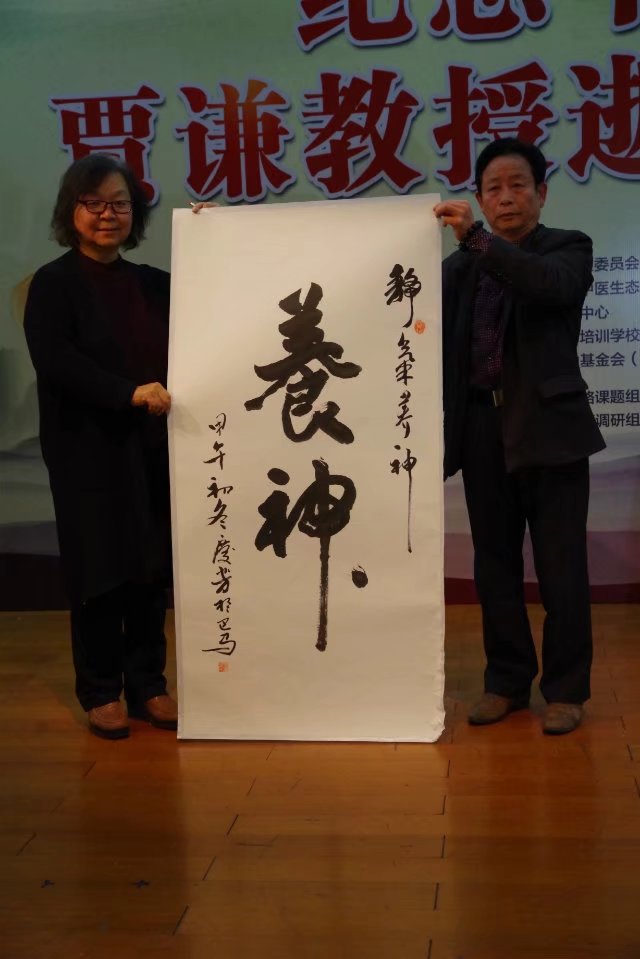 纪念
贾谦教授逝
委员会
医生态
中心
培训学校
基金会（
略课题组
调研组
静气养神
養神
甲午初冬庆芳於巴马